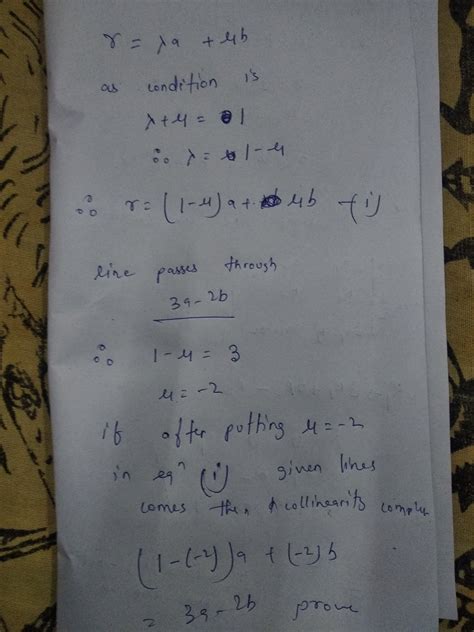 r = λa + μb
as condition is
λ+μ = 1
∴ λ = 1-μ
∴ r = (1-μ)a + μb -(i)
line passes through
3a-2b
∴ 1-μ = 3
μ = -2
if after putting μ = -2
in eqⁿ (i) given lines
comes then collinearity
(1-(-2))a + (-2)b
= 3a-2b prove